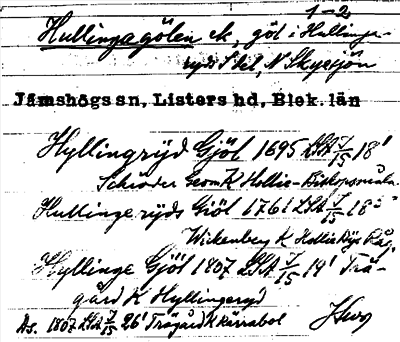 1-2
Hullingagölen ek, göl i Hullinge-
ryds S del, N Skyesjön
Jämshögs sn, Listers hd, Blek. län
Hyllingryd Gjöl 1695 LSA J/15 18'
Schröder Geom K Hollie-Biskopsmåla
Hullingeryds Giöl 1761 LSA J/15 18
Wickenberg K Hollie Rys Råg.
Hyllinge Gjöl 1807 LSA J/15 19' Trä-
gård K Hyllingeryd
As. 1807 LSA J/15 26' Trägård K Kärrabol